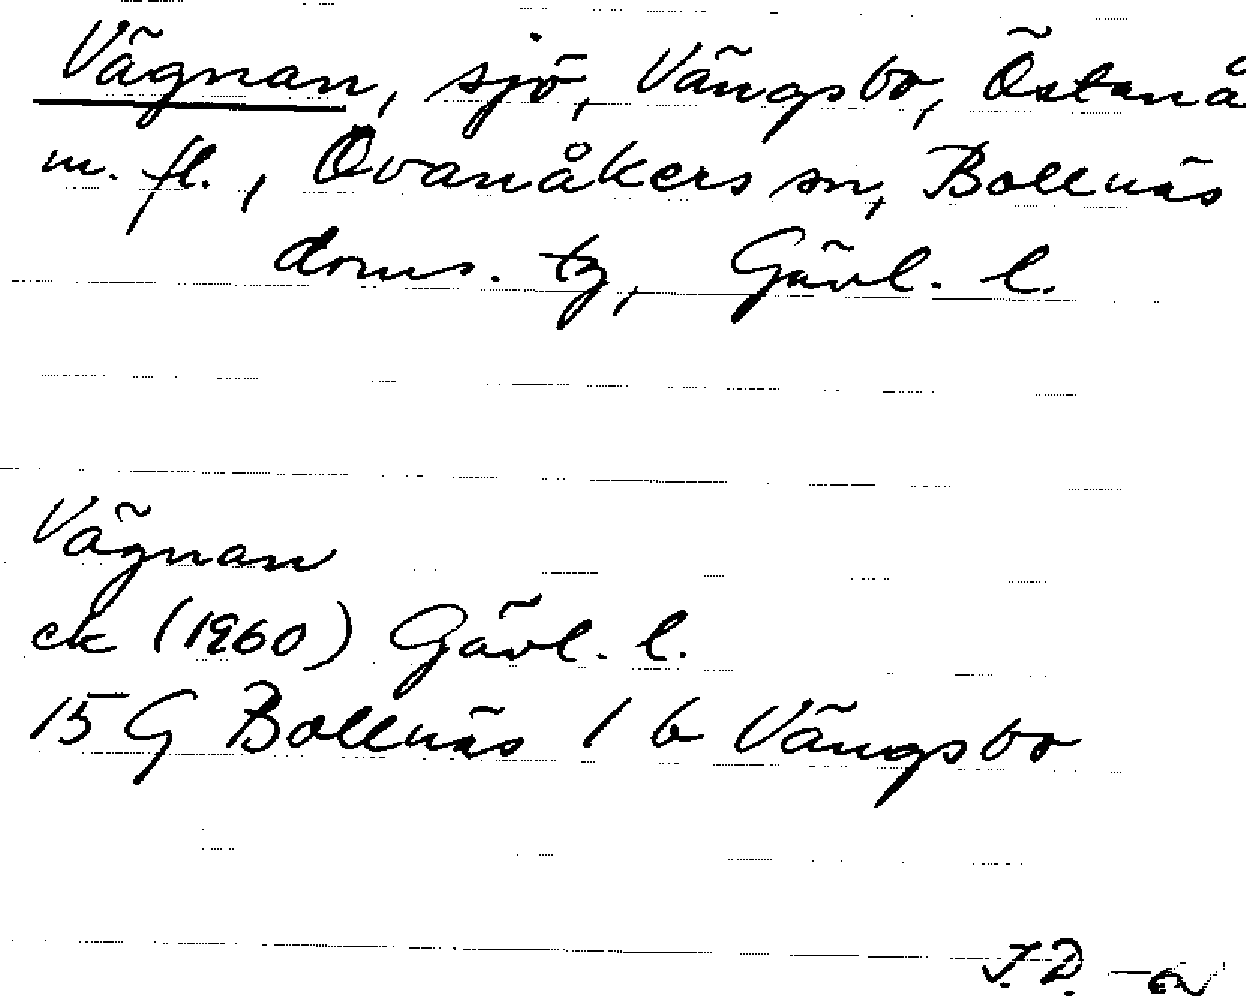 Vägnan, sjö, Vängsbo, Östanå
m. fl., Ovanåkers sn, Bollnäs
doms. tg, Gävl. l.
Vägnan
ek (1960) Gävl. l.
15 G Bollnäs 1 b Vängsbo